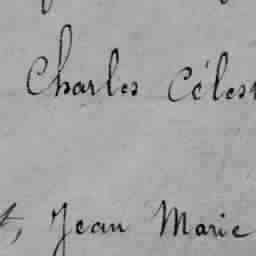 Charles Céles
t, Jean Marie